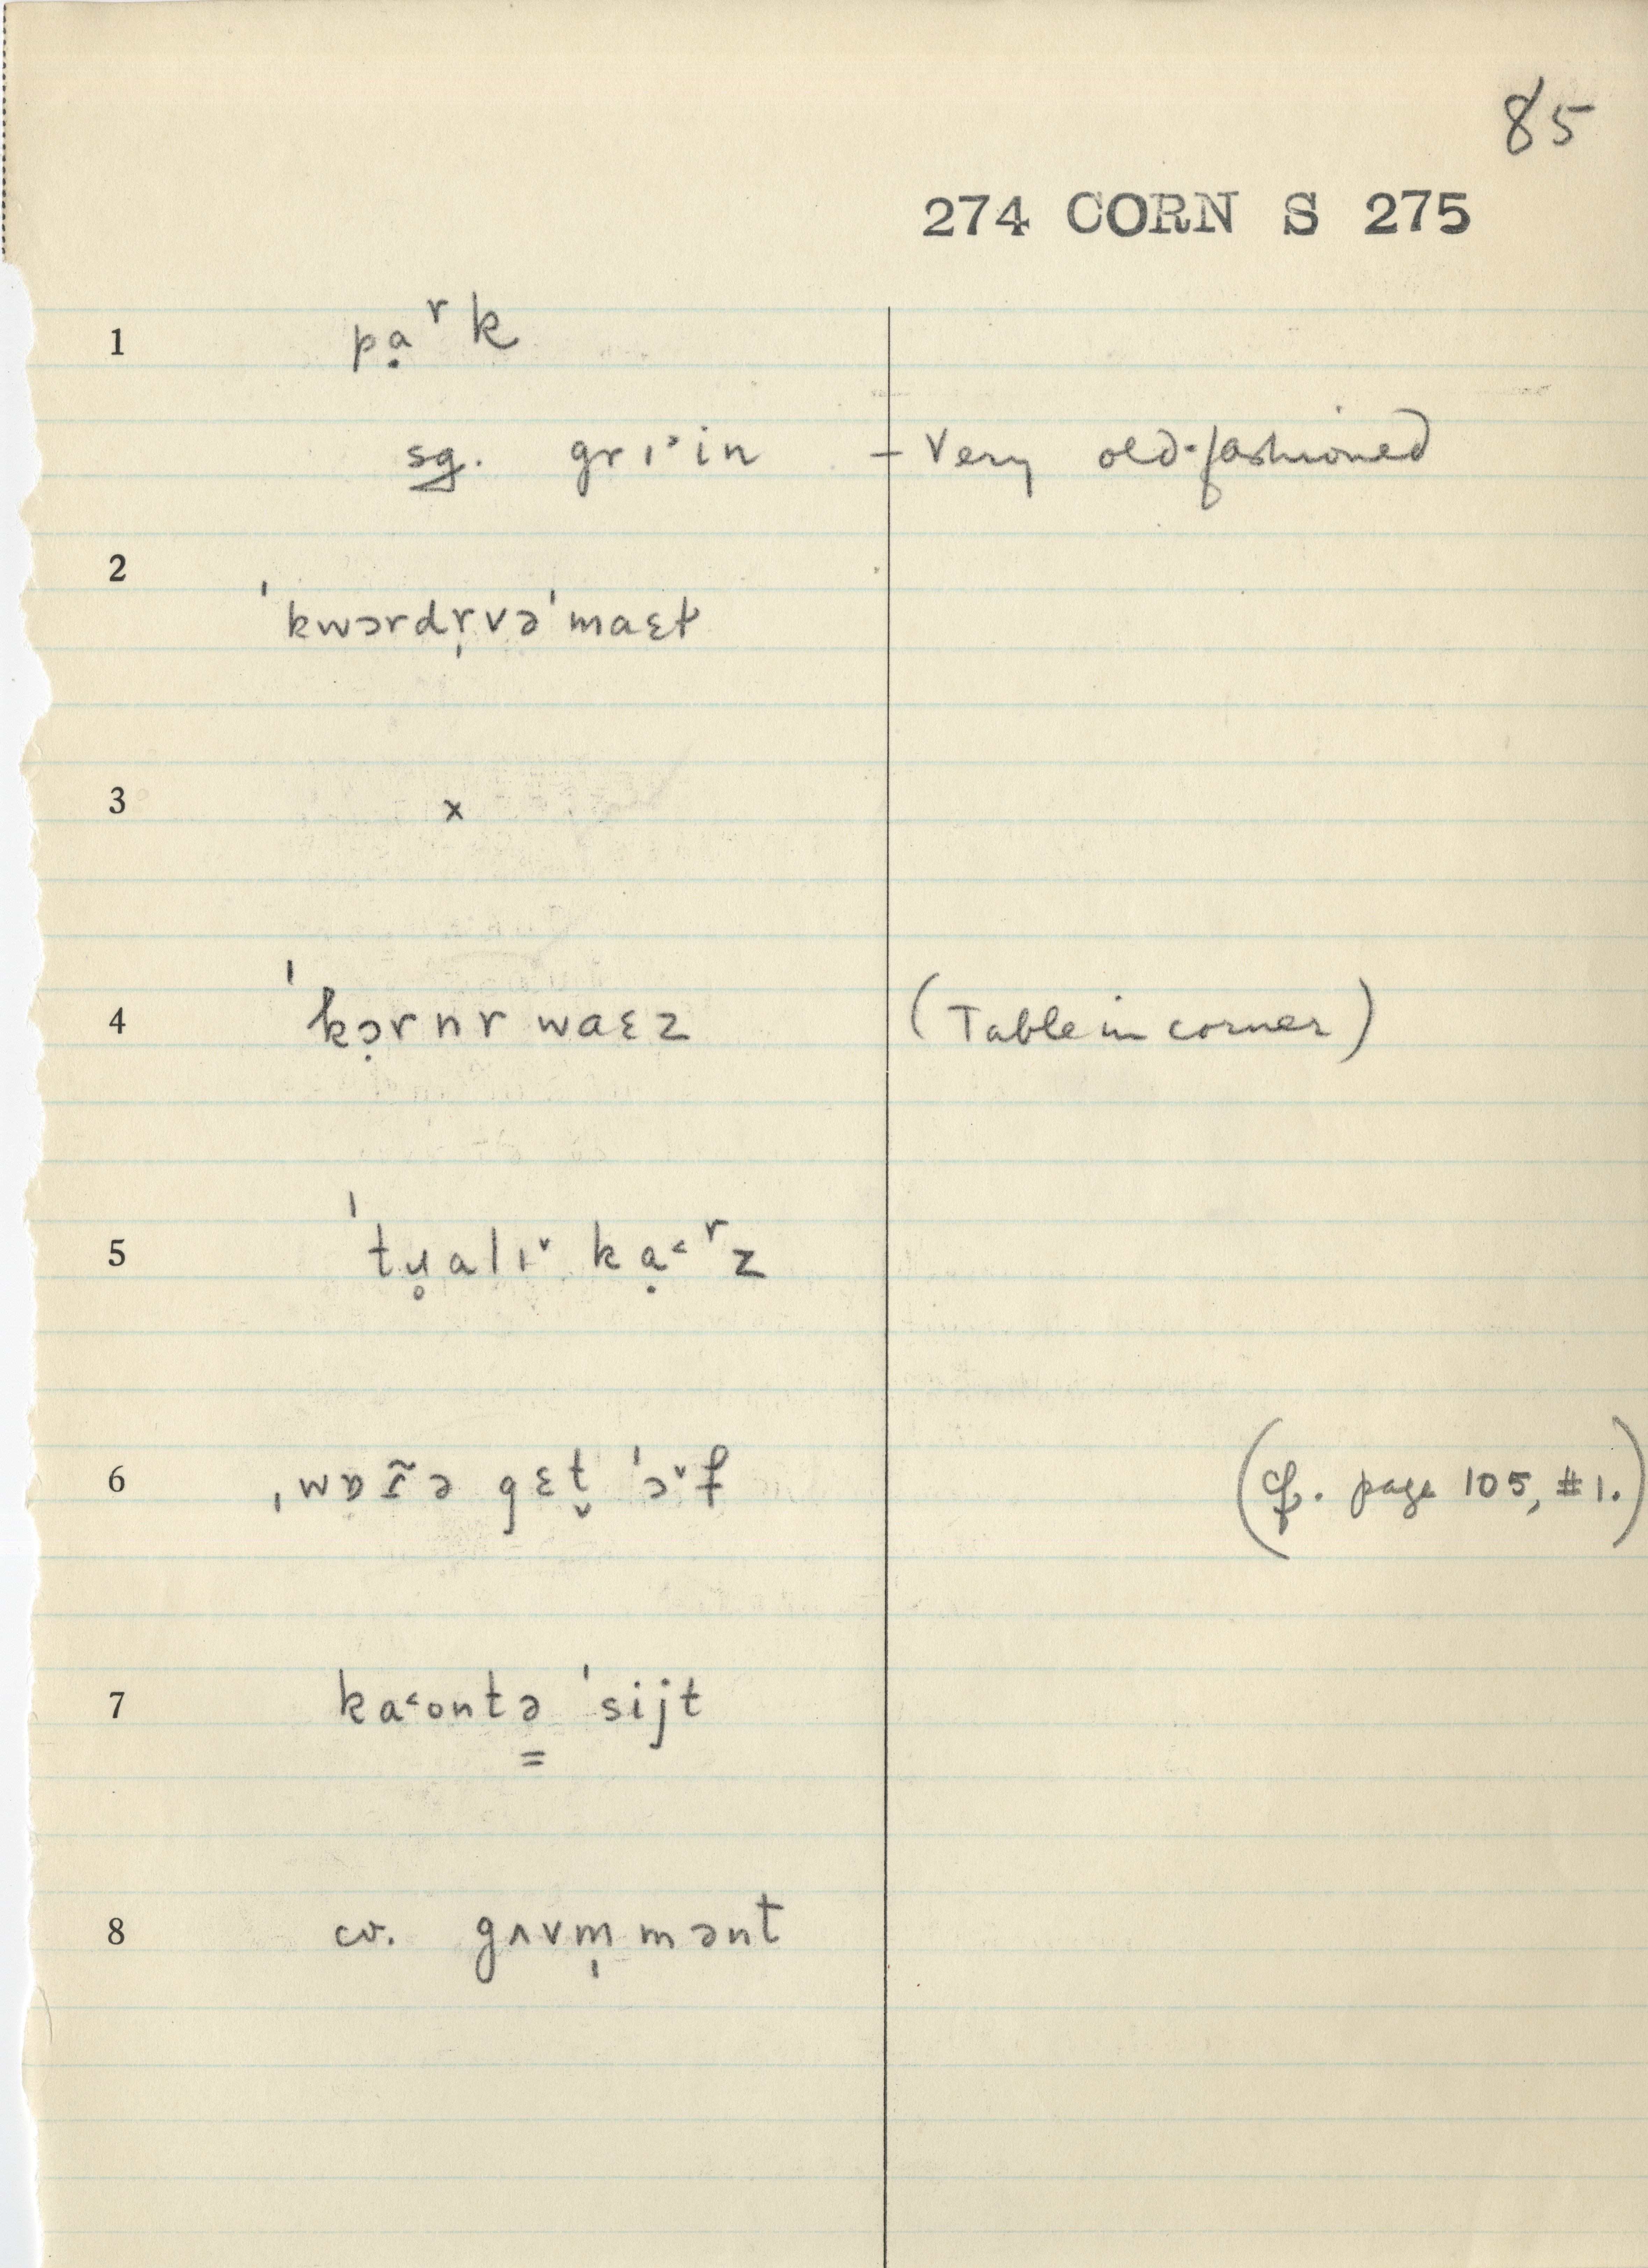 85
274 CORN S 275
1 pạʳk
sg. grɪ˃in – Very old-fashioned
2 ˈkwɔrdr̩və ˈmaɛt
3 x
4 ˈkɔ̣rnr waɛz (Table in corner)
5 ˈtu̥alɪ˅ kạ˂ʳz
6 gɛt̬ ˈɔ˅f (cf. page 105, #1.)
7 ka˂ontə̳ ˈsijt
8 cv. gʌvm̩mənt